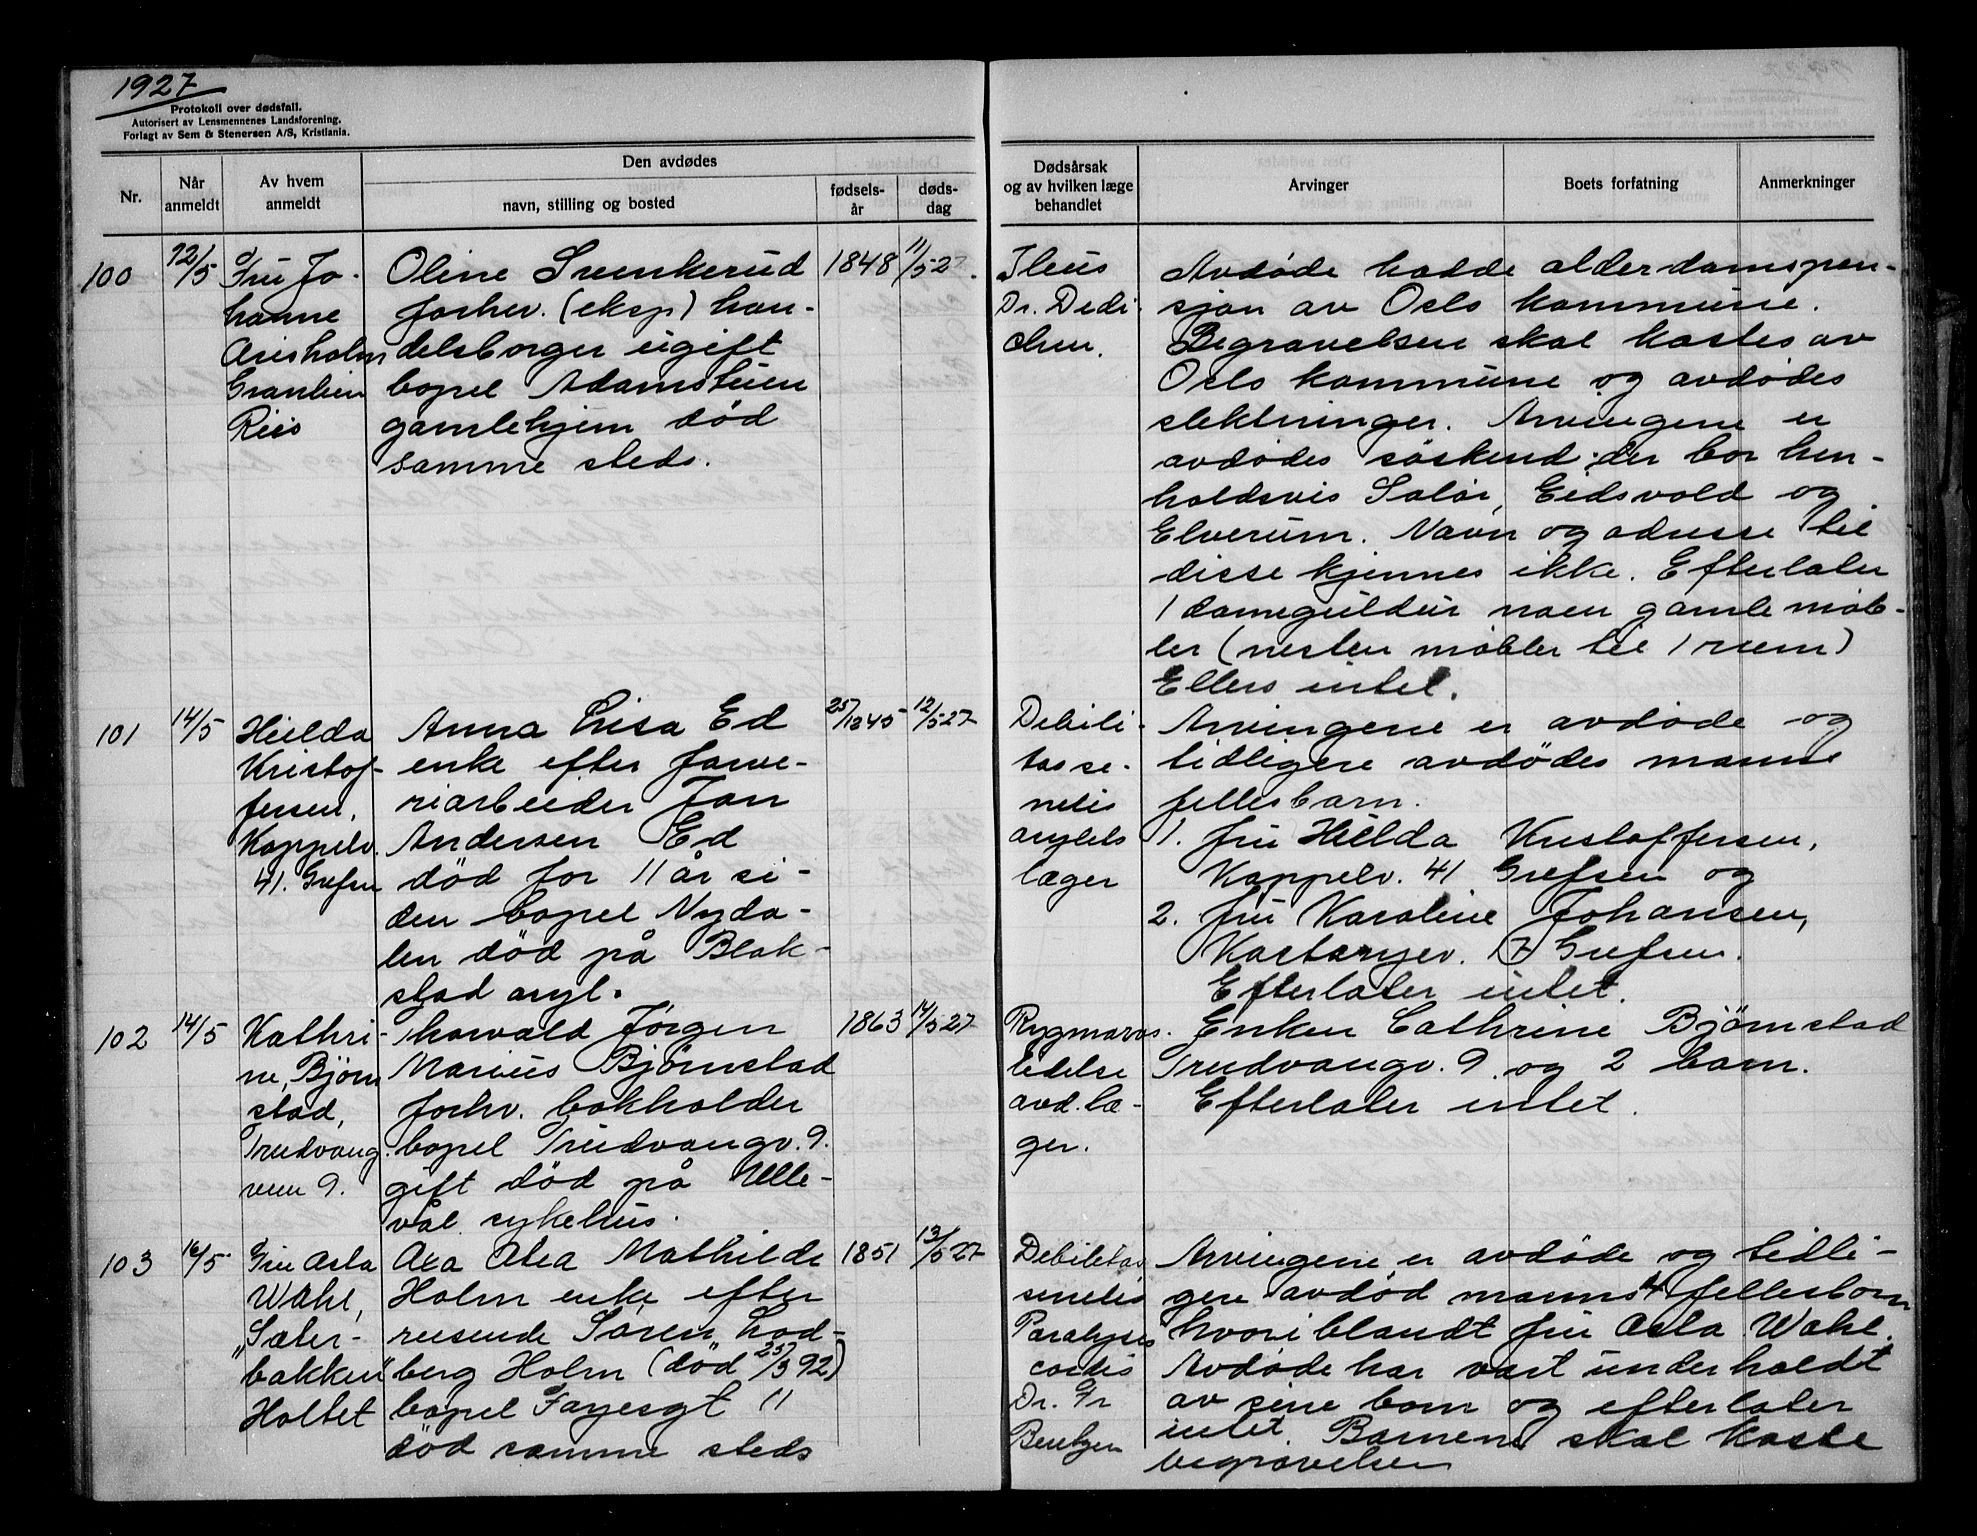 1927
Protokoll over dødsfall.
Autorisert av Lensmennenes Landsforening.
Forlagt av Sem & Stenersen A/S, Kristiania.
Nr.
Når anmeldt
Av hvem anmeldt
Den avdødes
navn, stilling og bosted
fødsels-år
døds-dag
Dødsårsak og av hvilken læge behandlet
Arvinger
Boets forfatning
Anmerkninger
100
12/5
Fru Jo-
hanne
Arisholm
Granlien
Riis
Oline Svenkerud
forhev. (eksp) han-
delsborger ugift
bopel Adamstuen
gamlehjem død
samme steds.
1848
11/5 27.
Ileus
Dr. Dedi-
chen.
Avdøde hadde alderdomspen-
sjon av Oslo kommune.
Begravelsen skal kostes av
Oslo kommune og avdødes
slektninger. Arvingene er
avdødes søskend der bor hen-
holdsvis Solør, Eidsvold og
Elverum. Navn og adresse til
disse kjennes ikke. Efterlater
1 dameguldur noen gamle møb-
ler (nesten møbler til 1 rum)
Ellers intet.
101
14/5
Hilda
Kristof-
fersen,
Kappelv.
41. Grefsen
Anna Lisa Ed
enke efter farve-
riarbeider Jan
Andersen Ed
død for 11 år si-
den bopel Nyda-
len død på Blak-
stad asyl.
12/5 27
Debili-
tas se-
nilis
asylets
læger
Arvingene er avdøde og
tidligere avdødes manns
fellesbarn.
1. fru Hilda Kristoffersen,
Kappelv. 41 Grefsen og
2. fru Karoline Johansen,
Kastanjev. 7 Grefsen.
Efterlater intet.
102
14/5
Kathri-
ne Bjørn
stad,
Trudvang
veien 9.
Thorvald Jørgen
Marius Bjørnstad
forhv. bokholder
bopel Trudvangv. 9.
gift død på Ulle-
vål sykehus.
1863
14/5 27
Rygmarvs.
lidelse
avd. læ-
ger.
Enken Cathrine Bjørnstad
Trudvangv. 9 og 2 barn.
Efterlater intet.
103
16/5
Fru Asta
Wahl,
"Sæter-
bakken"
Holtet
Axa Alea Mathilde
Holm enke efter
reisende Søren Lod-
berg Holm (død 25/3 92)
bopel Fayesgt 11
død samme steds
1851
13/5 27
Debilitas
senilis
Paralysis
cordis
Dr. Fr
Arvingene er avdøde og tidli-
gere avdød manns 4 fellesbarn
hvoriblandt fru Asta Wahl.
Avdøde har vært underholdt
av sine barn og efterlater
intet. Barnene skal koste
begravelsen